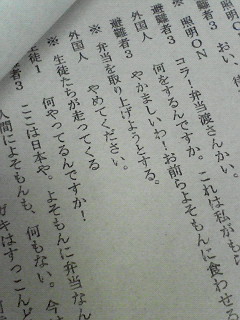 おい、
※ 照明ON
避難者3 コラ！弁当渡さんかい。
外国人 何をするんですか。これは私がもら
避難者3 やかましいわ！お前らよそもんに食わせる
※ 弁当を取り上げようとする。
外国人 やめてください。
※ 生徒たちが走ってくる
生徒1 何やってるんですか！
避難者3 ここは日本や。よそもんに弁当なん
人間によそもんも、何もない。今
ガキはすっこんど